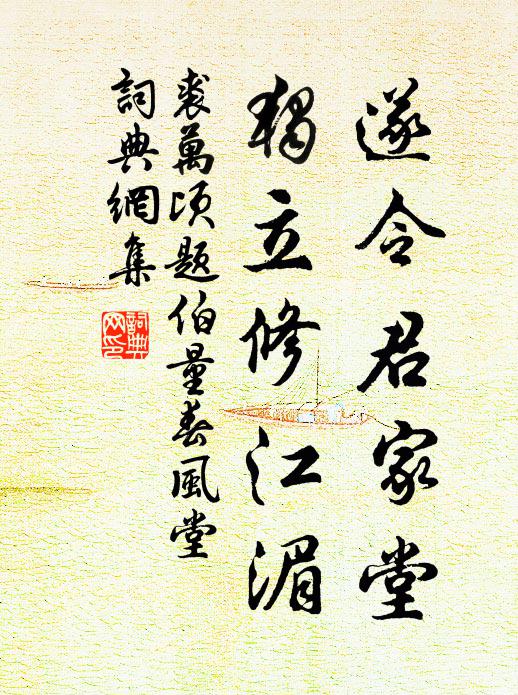 遂令君家堂
獨立修江湄
裘萬頃題伯量春風堂
詞典網集
詞典
网印